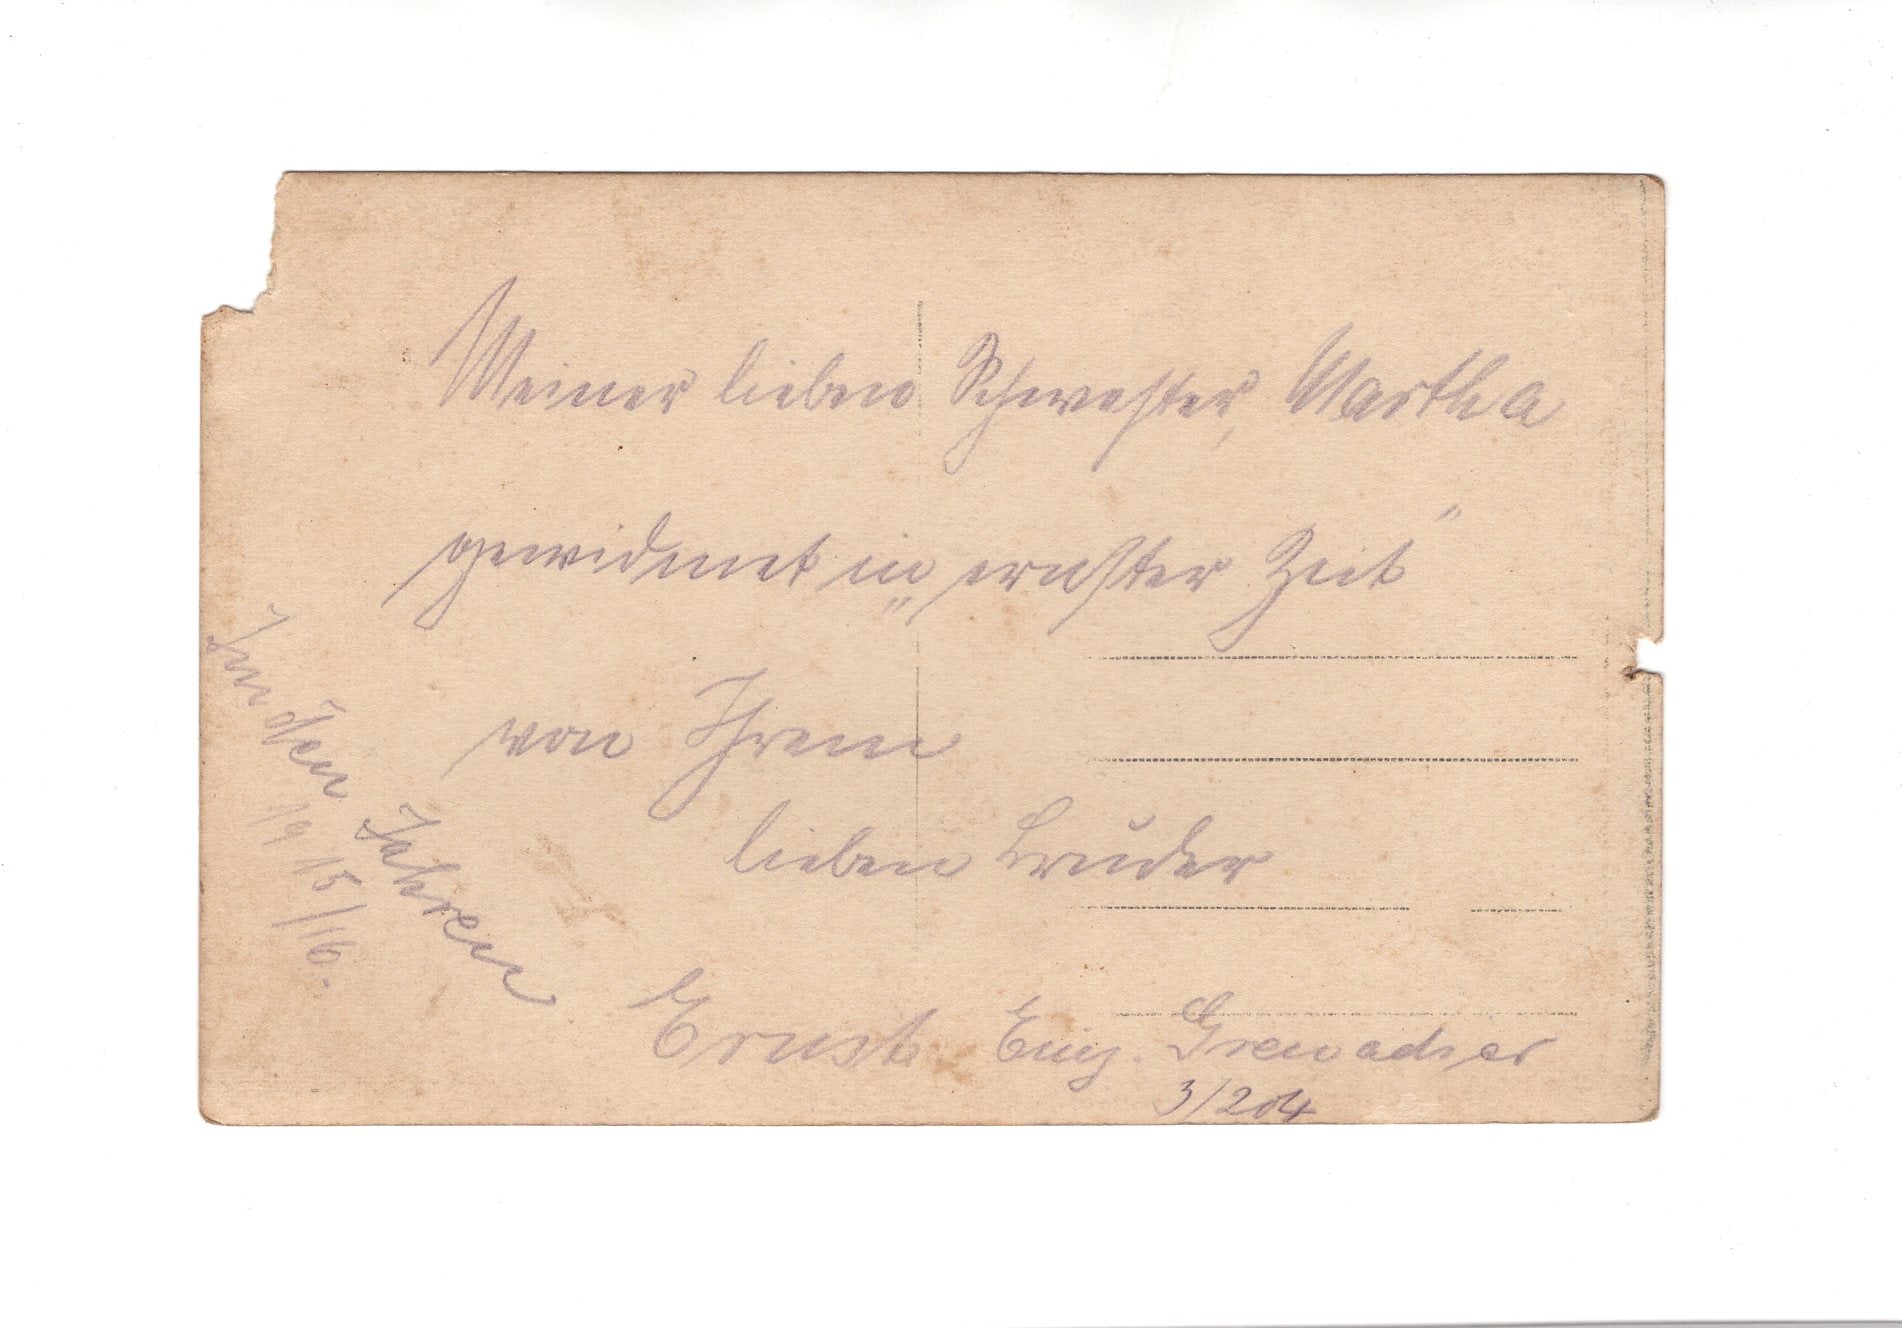 Meiner lieben Schwester, Martha
gewidmet in „ernster Zeit“
von Ihrem
lieben Bruder
Ernst Einj. Grenadier
3/204
In den Jahren
1915/16.